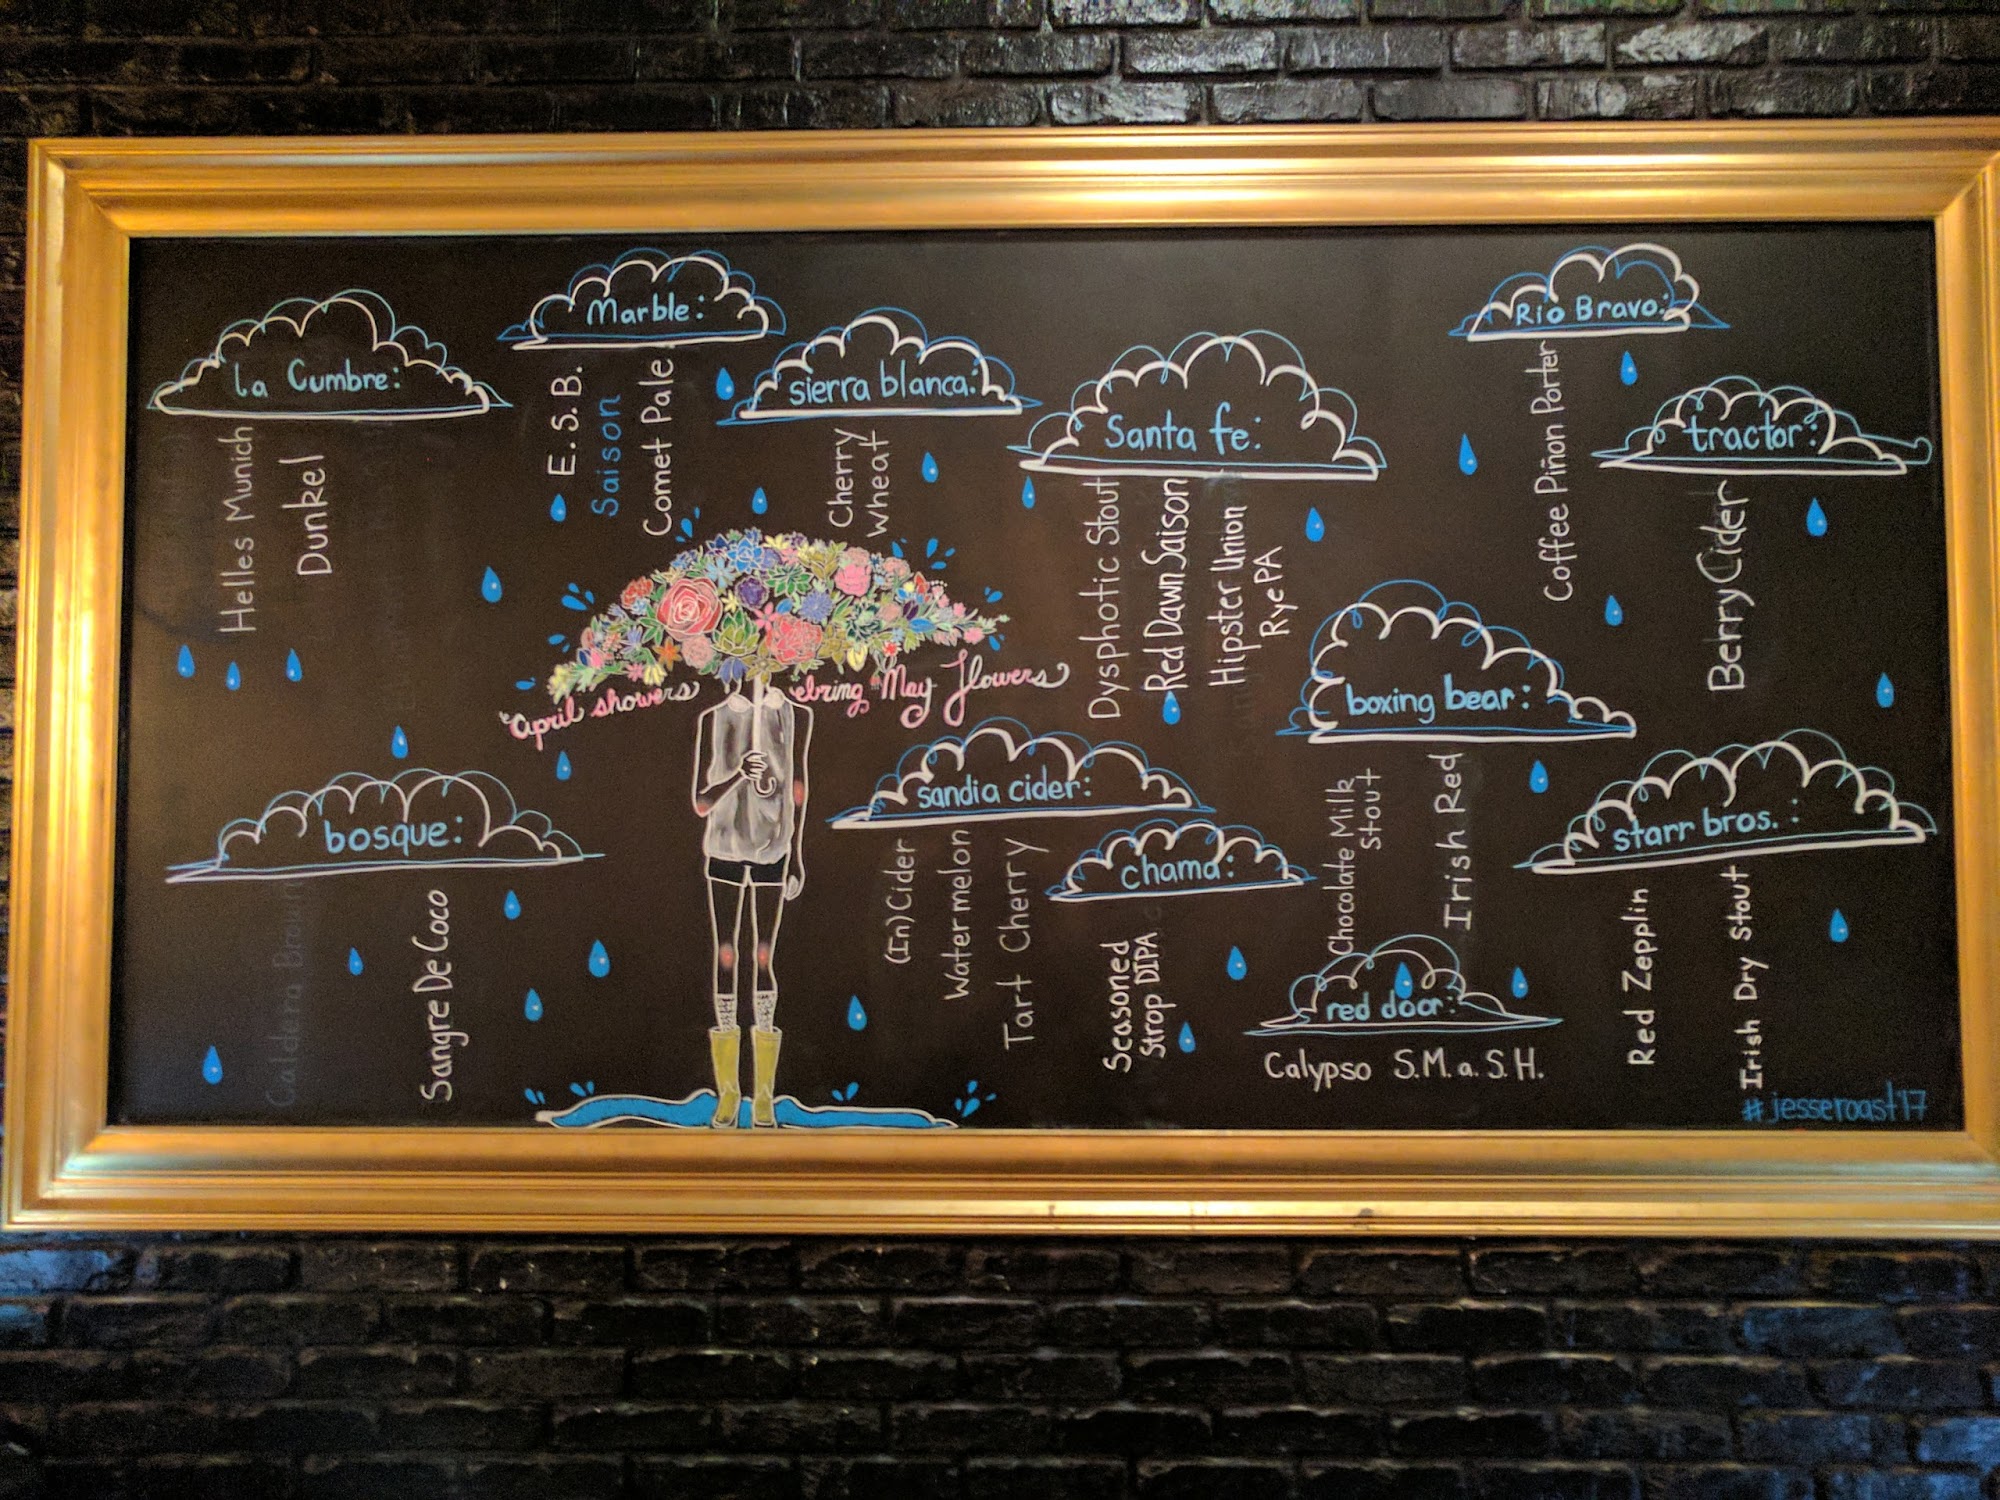 La Cumbre:
Helles Munich
Dunkel
Marble:
E.S.B.
Saison
Comet Pale
sierra blanca:
Cherry
Wheat
Santa fe:
Dysphotic Stout
Red Dawn Saison
Hipster Union
Rye PA
Rio Bravo:
Coffee Piñon Porter
tractor:
Berry Cider
"April showers bring May flowers
bosque:
Caldera Brown
Sangre De Coco
sandia cider:
(In)Cider
Watermelon
Tart Cherry
chama:
Seasoned
Strop DIPA
boxing bear:
Chocolate Milk
Stout
Irish Red
red door:
Calypso S.M.a.S.H.
starr bros.:
Red Zepplin
Irish Dry Stout
#jesseroast17